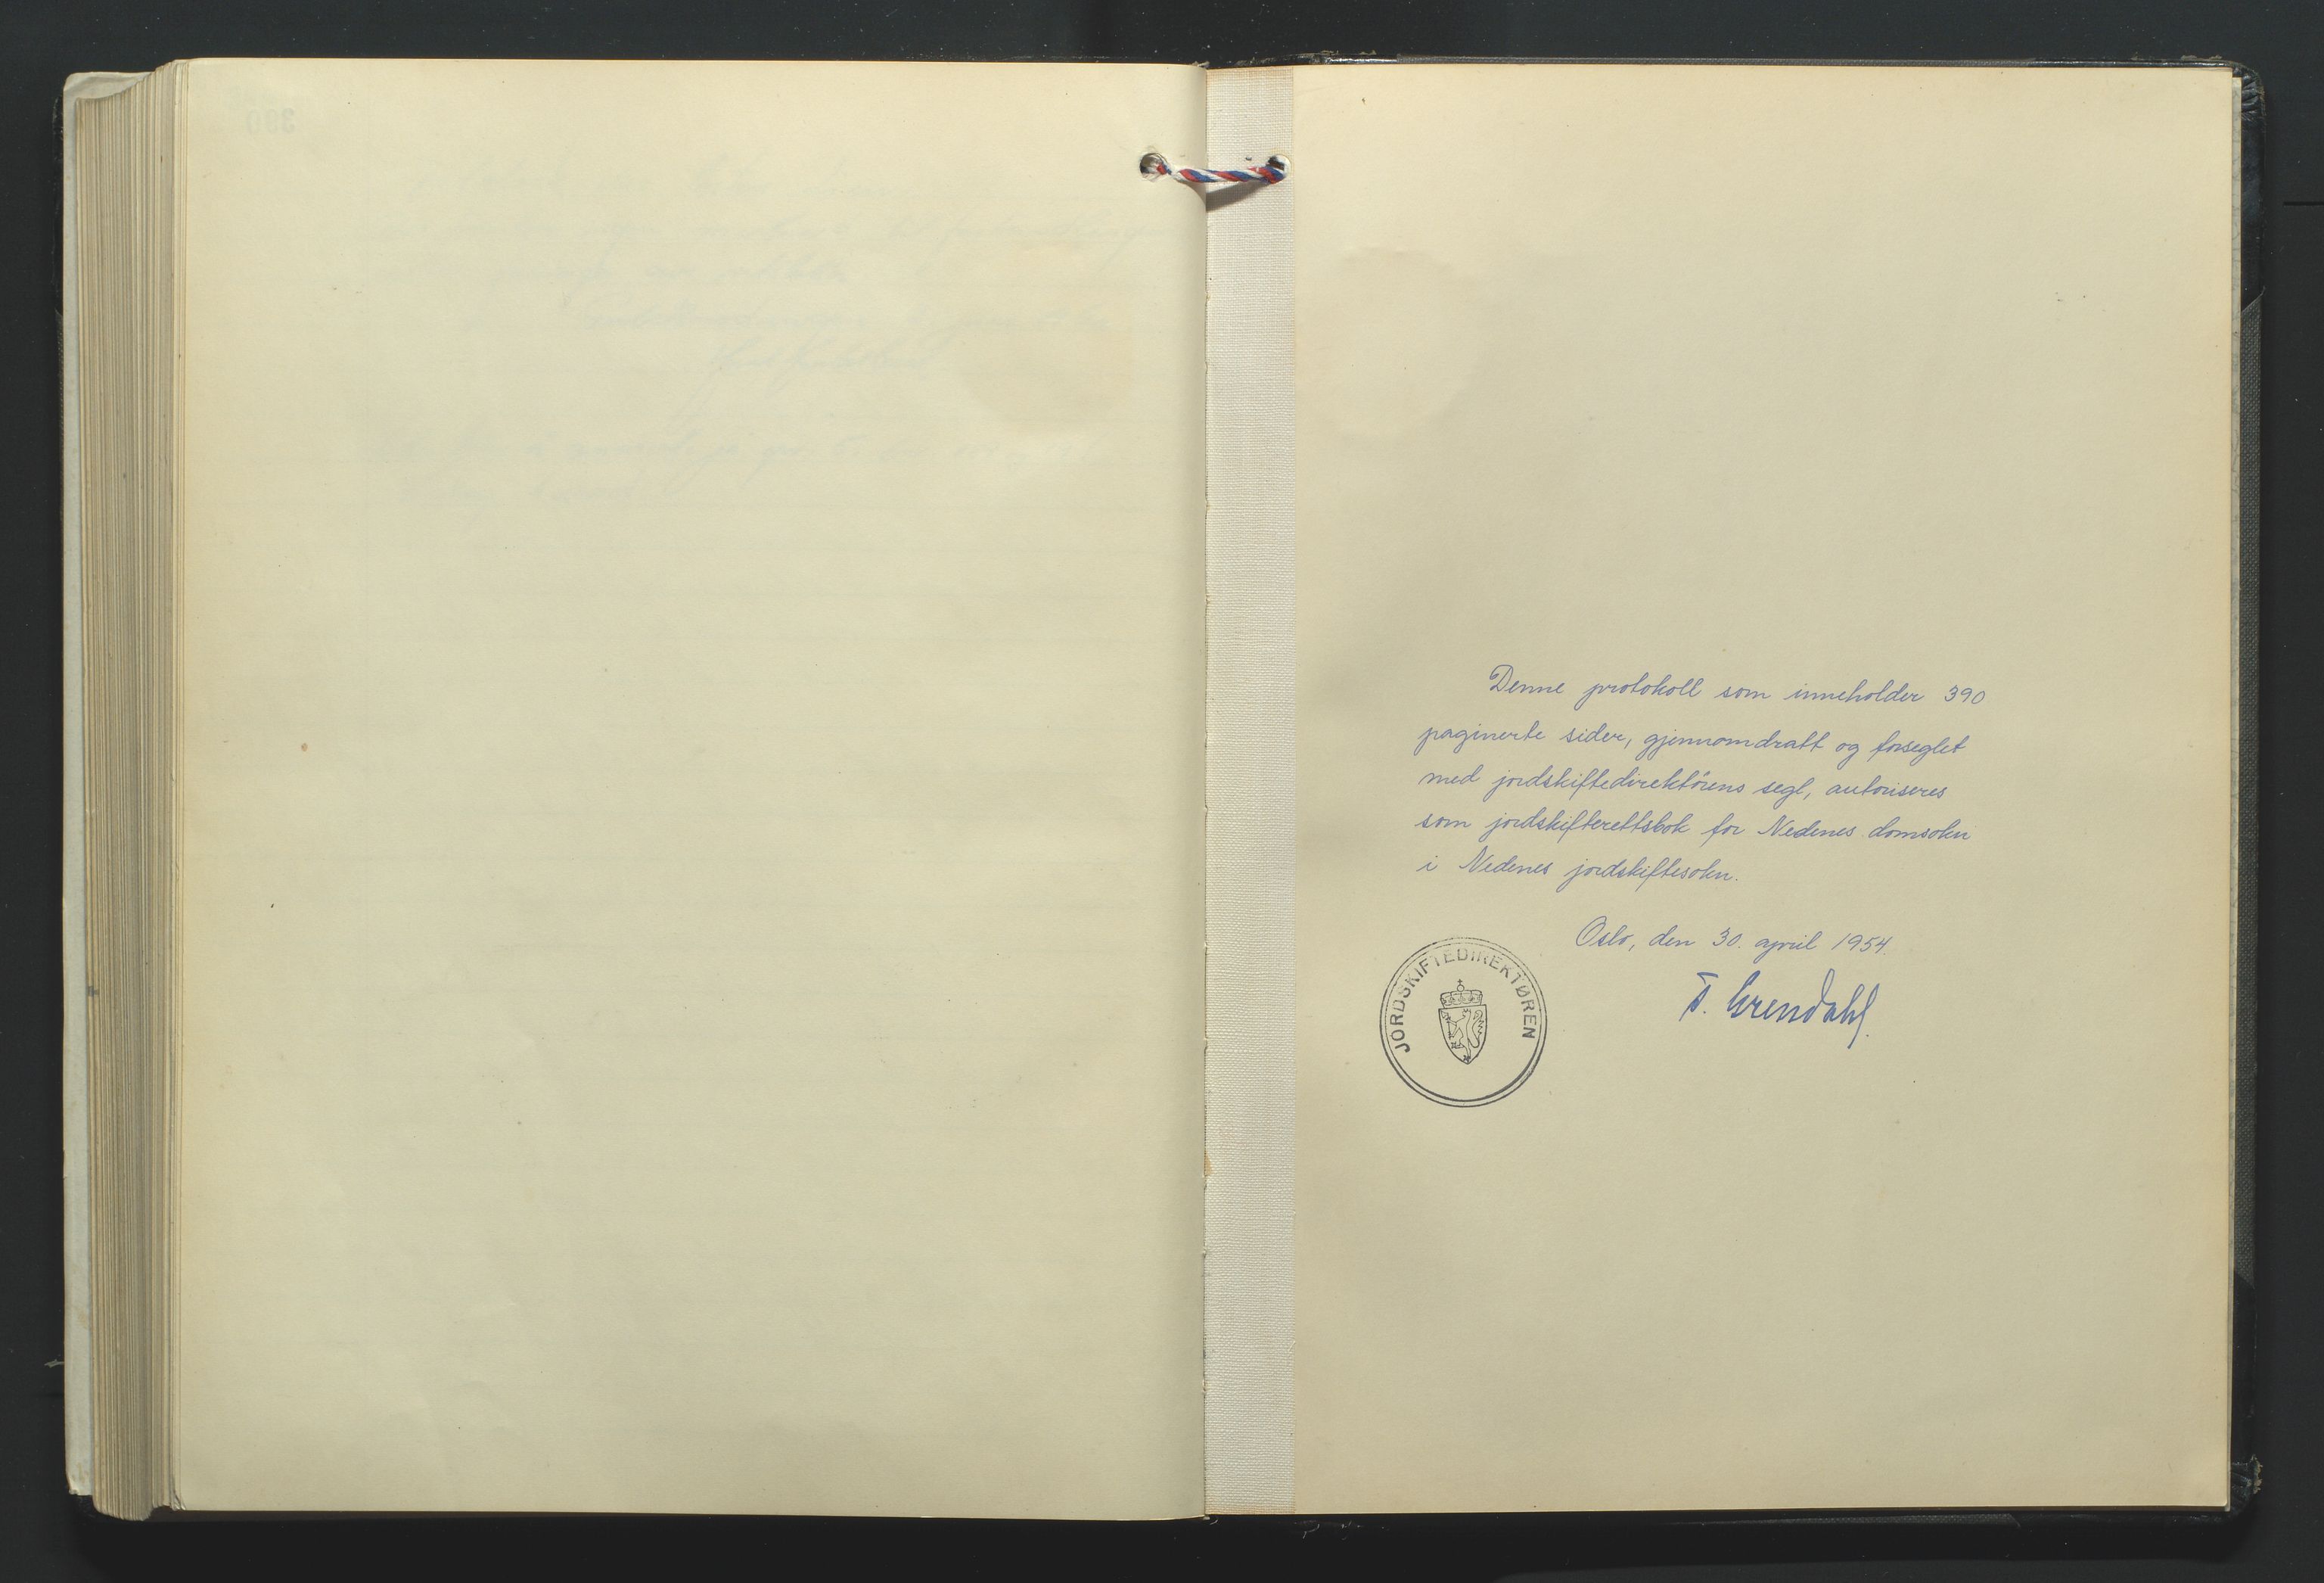 Denne protokoll som inneholder 390
paginerte sider, gjennomdratt og forseglet
med jordskiftedirektörens segl, autoriseres
som jordskifterettsbok for Nedenes domsokn
i Nedenes jordskiftesokn.
Oslo, den 30. april 1954.
T. Grendahl.
JORDSKIFTEDIREKTØREN
390